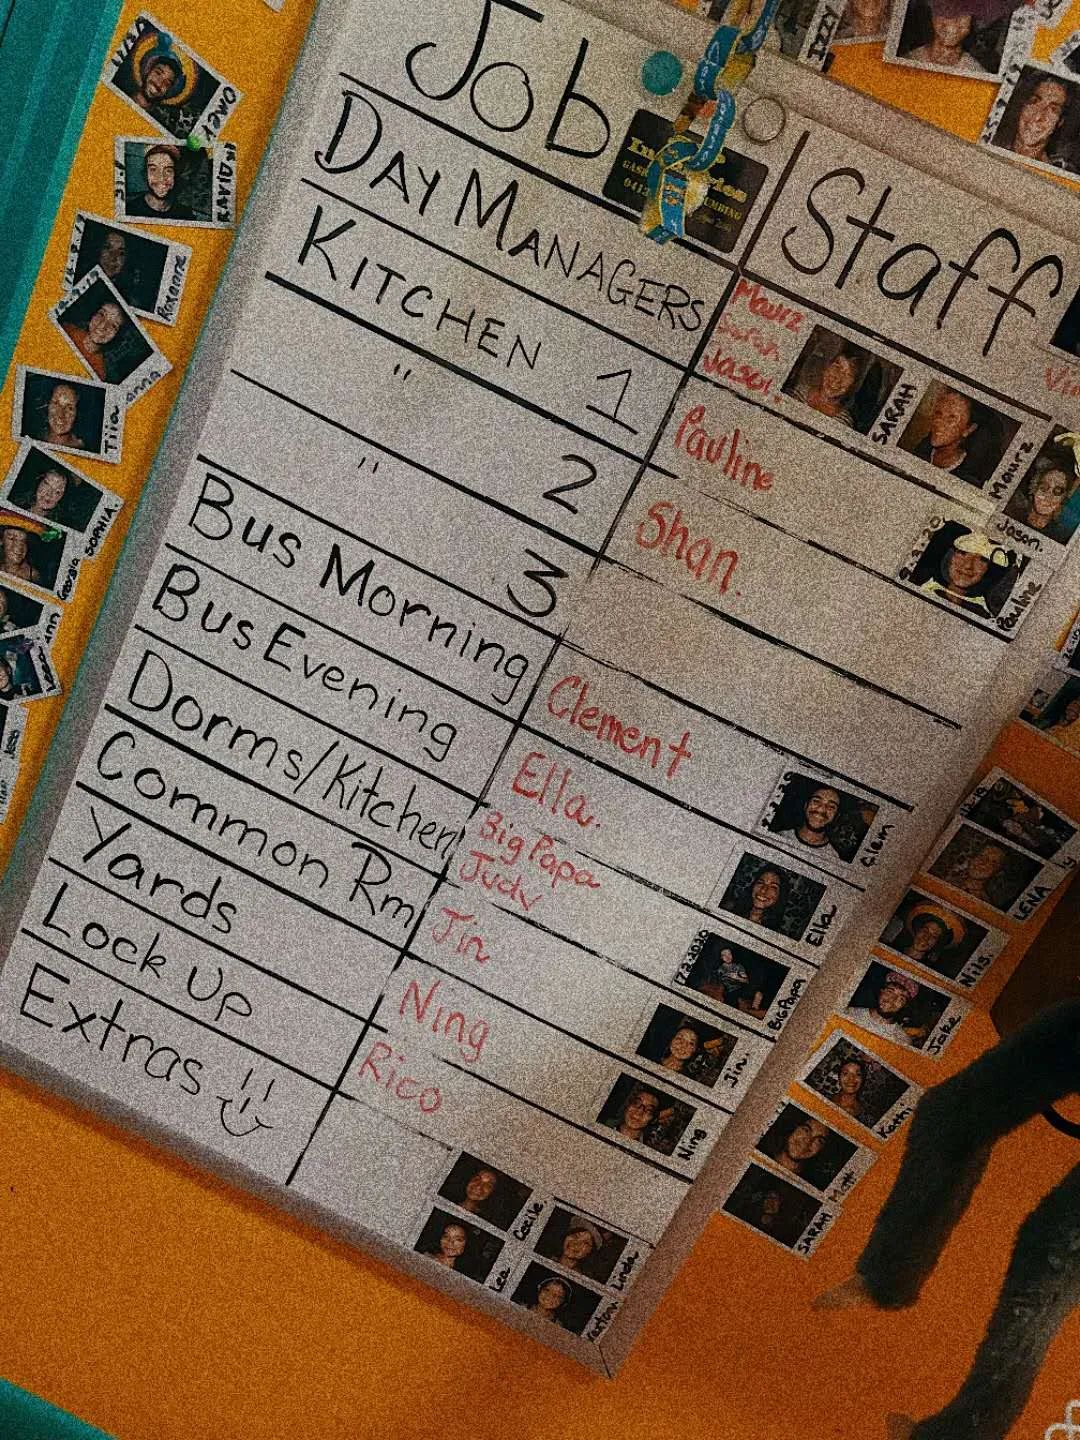 Job Staff
DAY MANAGERS
Maurz
Sarah
Jason.
KITCHEN 1 Pauline
" 2 Shan.
" 3
Bus Morning Clement
Bus Evening Ella.
Dorms/Kitchen Big Papa
Judy
Common Rm Jin
Yards Ning
Lock Up Rico
Extras
SARAH
Maurz
Jason.
Pauline
Clem
Ella
7.2.2020
Big Papa
Jin.
Ning
Cecile
Lea
Linda
IZZY
RAVID
Roxanne
anna
Tiia
SOPHIA.
Georgia
LENA
Nils.
Jake
Kathi
Matt
SARAH